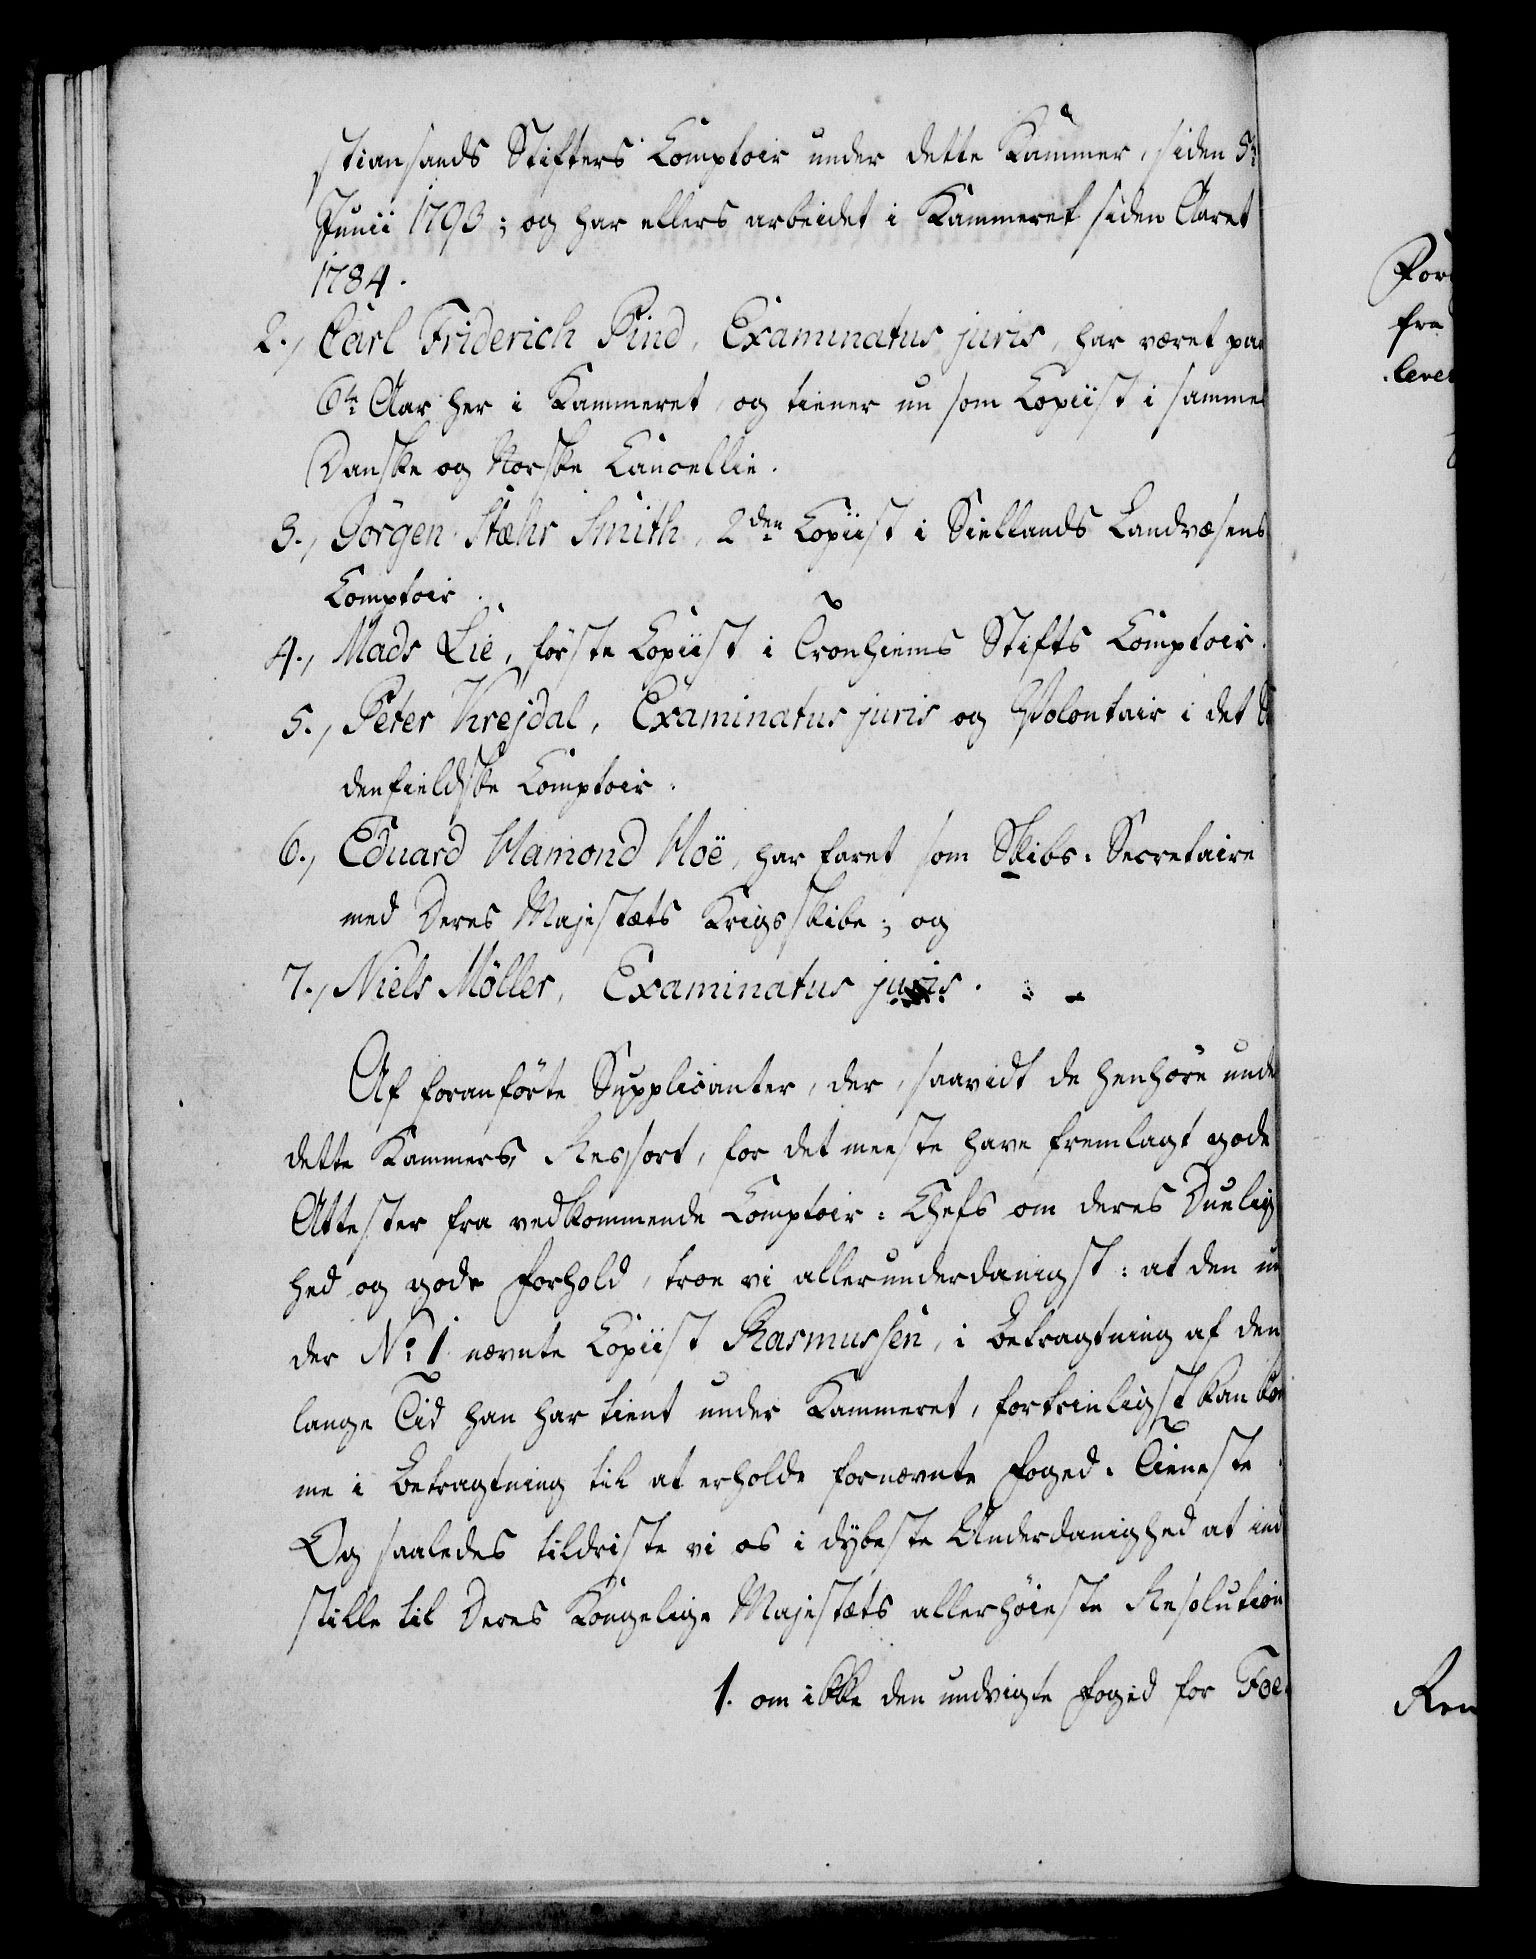 stiansands Stifters Comptoir under dette Kammer, siden 5te
Junii 1793; og har ellers arbeidet i Kammeret siden Aaret
1784.
2., Carl Friderich Pind, Examinatus juris, har været paa
6te Aar her i Kammeret, og tiener nu som Copiist i samme
Danske og Norske Cancellie.
3., Jörgen Stæhr Smith, 2den Copiist i Siellands Landvæsens
Comptoir.
4., Mads Lie, förste Copiist i Tronhiems Stifts Comptoir.
5., Peter Krejdal, Examinatus juris og Volontair i det
denfieldske Comptoir.
6., Eduard Hamond Hoë, har faret som Skibs-Secretaire
med Deres Majestæts Krigsskibe; og
7., Niels Möller, Examinatus juris.
Af foranförte Supplicanter, der, saavidt de henhöre unde
dette Kammers Ressort, for det meeste have fremlagt gode
Attester fra vedkommende Comptoir-Chefs om deres Duelig
hed og gode Forhold, troe vi allerunderdanigst: at den un
der No 1 nævnte Copiist Rasmussen, i Betragtning af den
lange Tid han har tient under Kammeret, fortrinligst kan kom
me i Betragtning til at erholde fornævnte Foged-Tieneste.
Og saaledes tildriste vi os i dybeste Underdanighed at ind
stille til Deres Kongelige Majestæts allerhöieste Resolution
1. om ikke den undvigte Foged for Foe
For
fra
leve
Ren